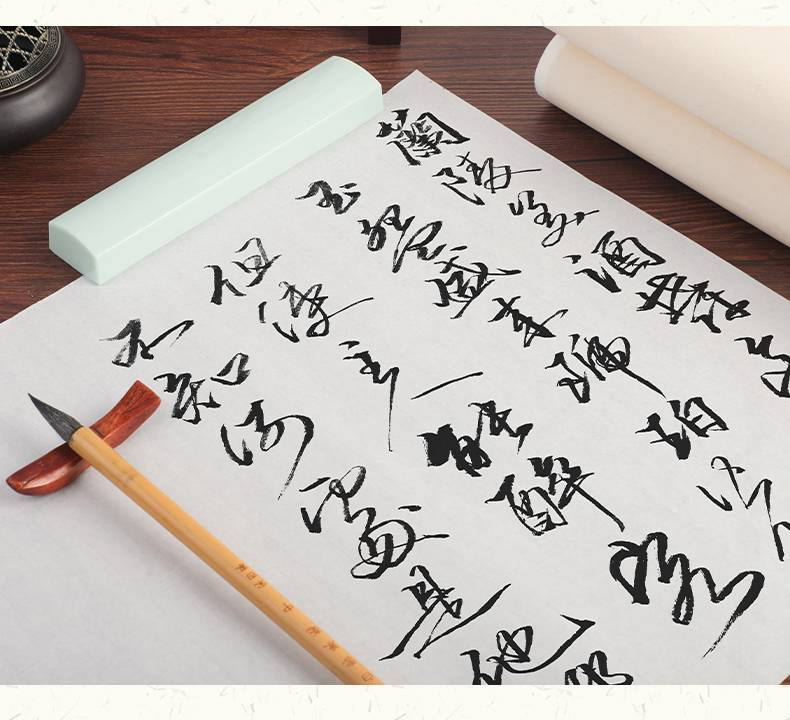 蘭陵美酒鬱
玉碗盛来琥珀光
但使主人能醉客
不知何處是他